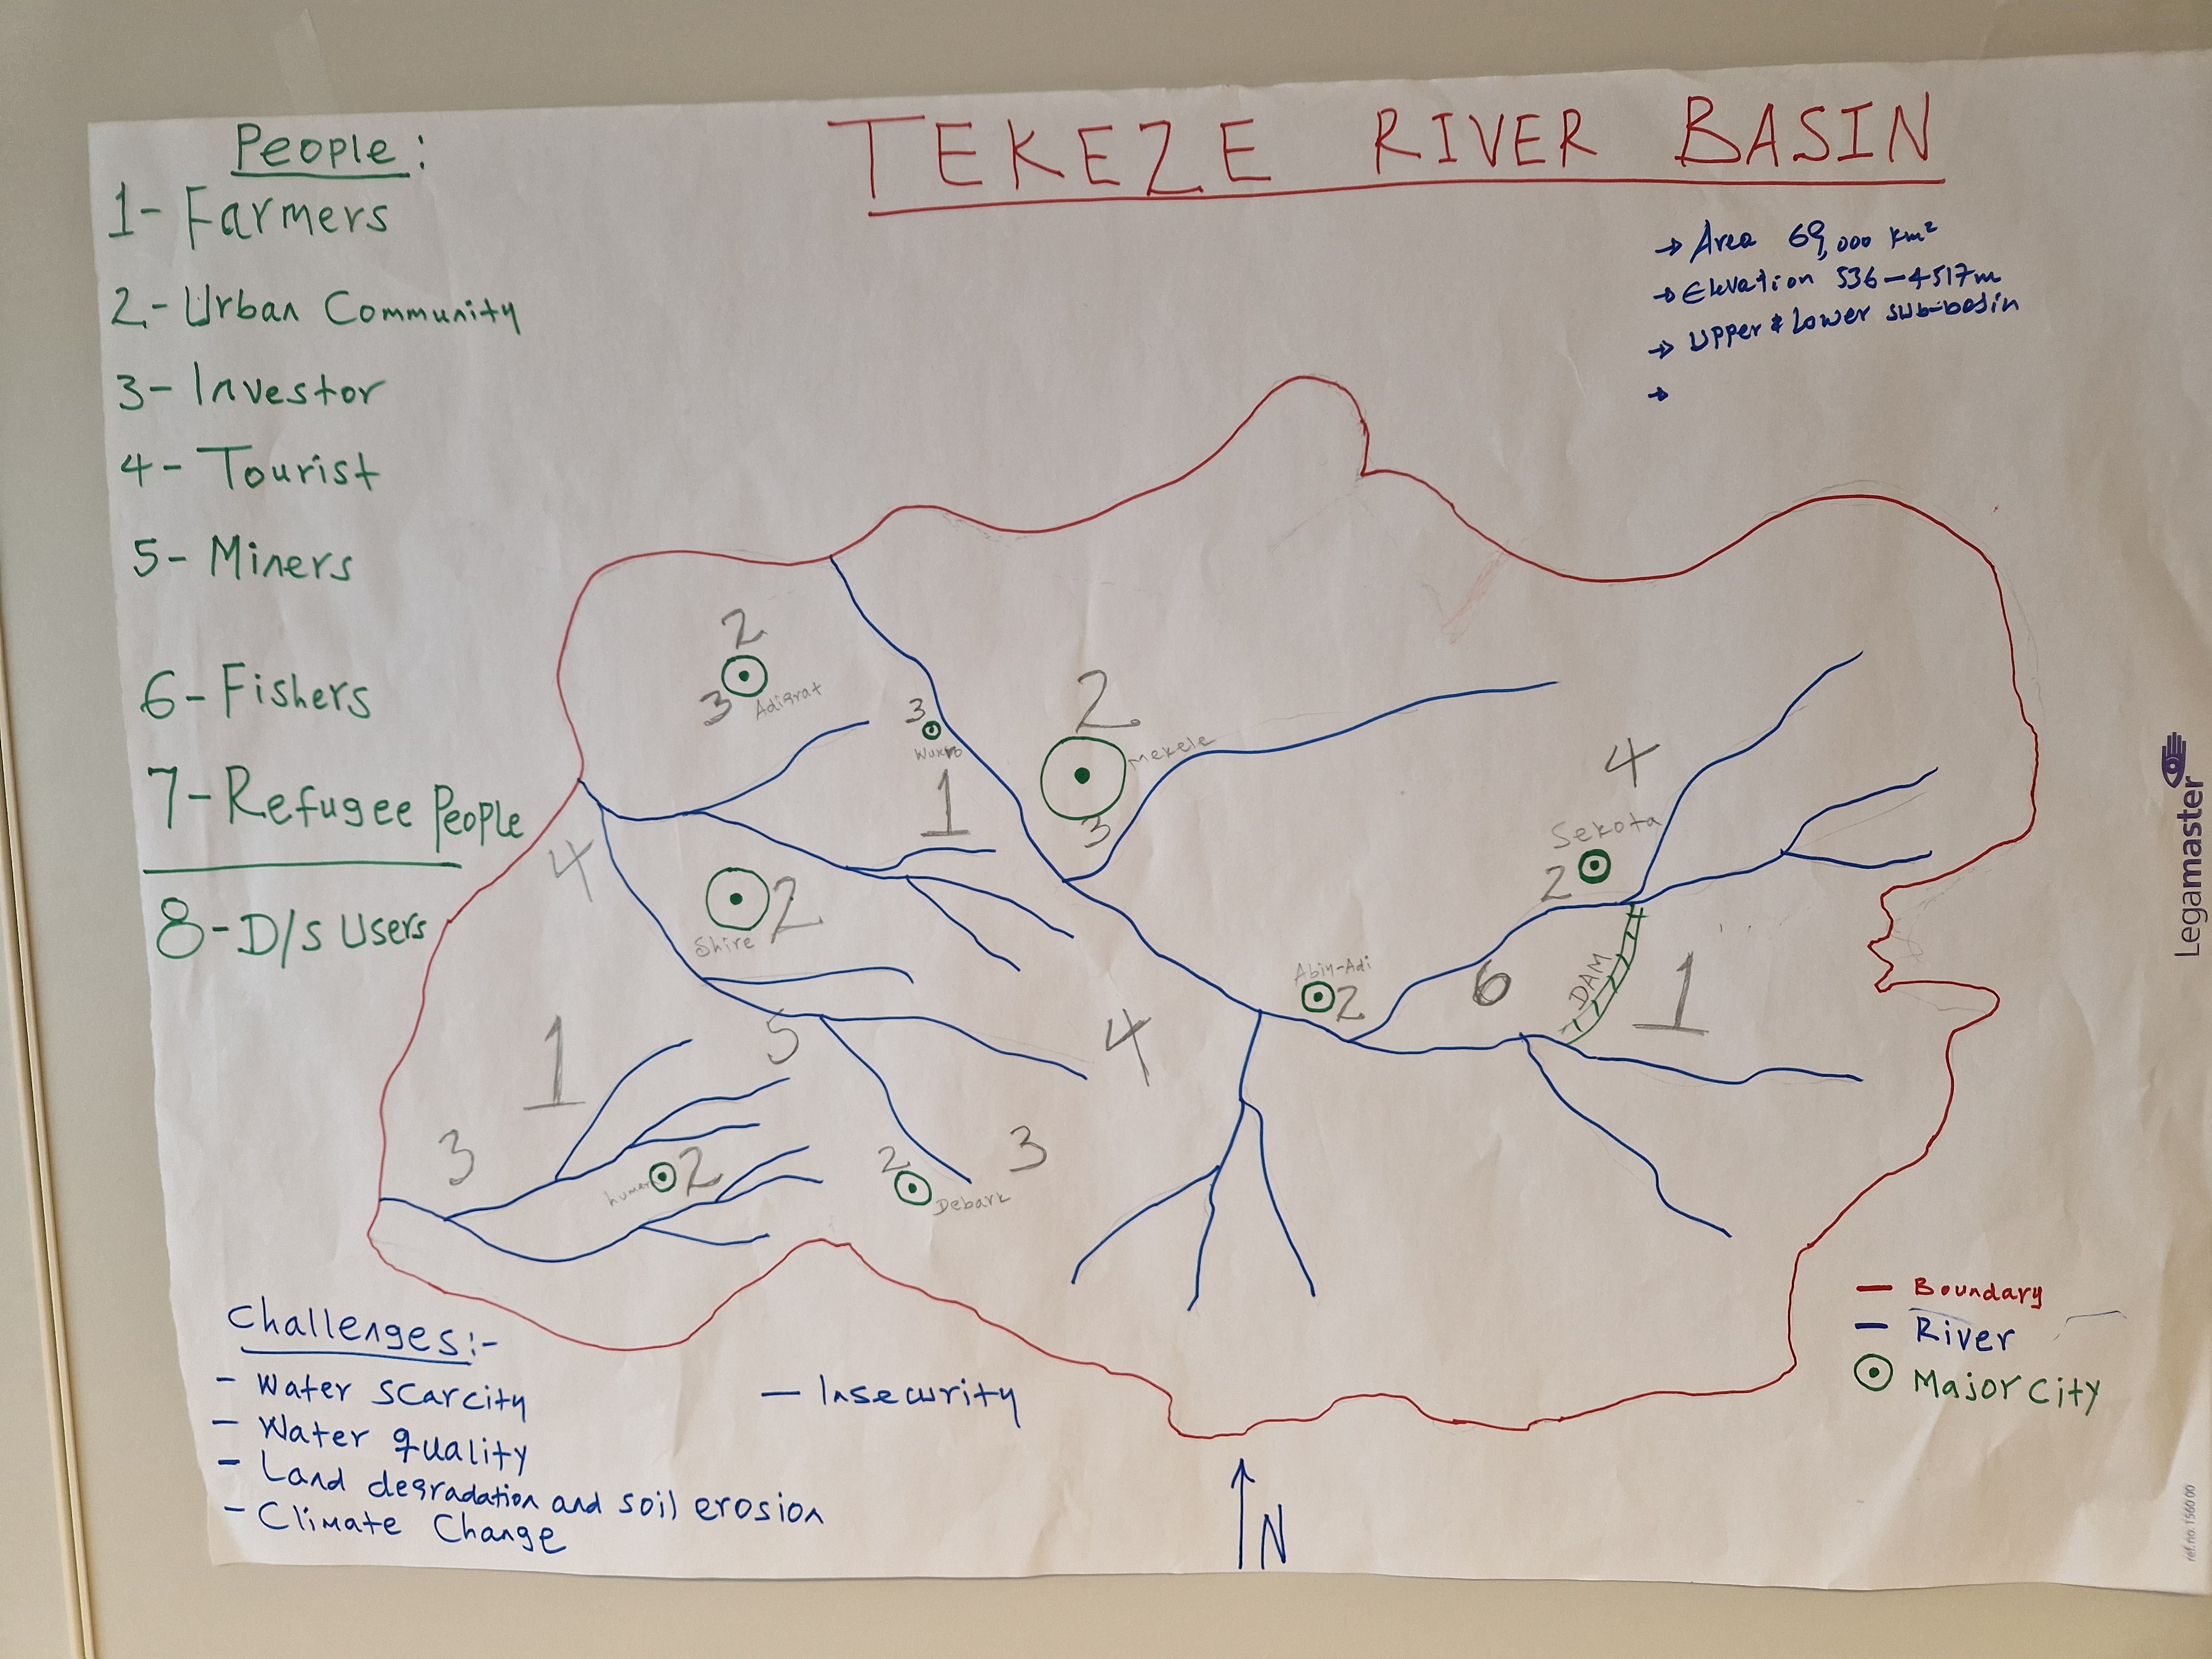 TEKEZE RIVER BASIN
People:
1- Farmers
2- Urban Community
3- Investor
4- Tourist
5- Miners
6- Fishers
7- Refugee People
8- D/s Users
→ Area 69,000 km²
→ Elevation 536-4517m
→ Upper & Lower sub-basin
→
2
3
Adigrat
3
1
2
Mekele
3
4
Sekota
2
4
2
Shire
Abiy-Adi
2
6
DAM
1
1
5
4
3
2
2
Debark
3
Challenges:-
- Water scarcity
- Water quality
- Land degradation and soil erosion
- Climate Change
- Insecurity
N
Boundary
River
Major City
Legamaster
ref.no. 156000